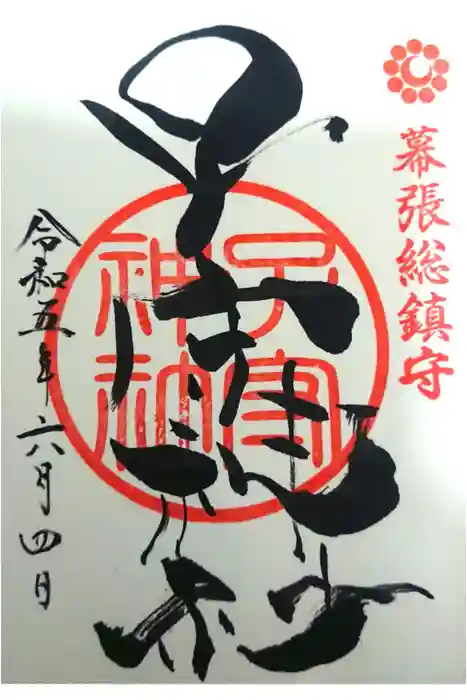 幕張総鎮守
子安神社
子安神社
令和五年六月四日